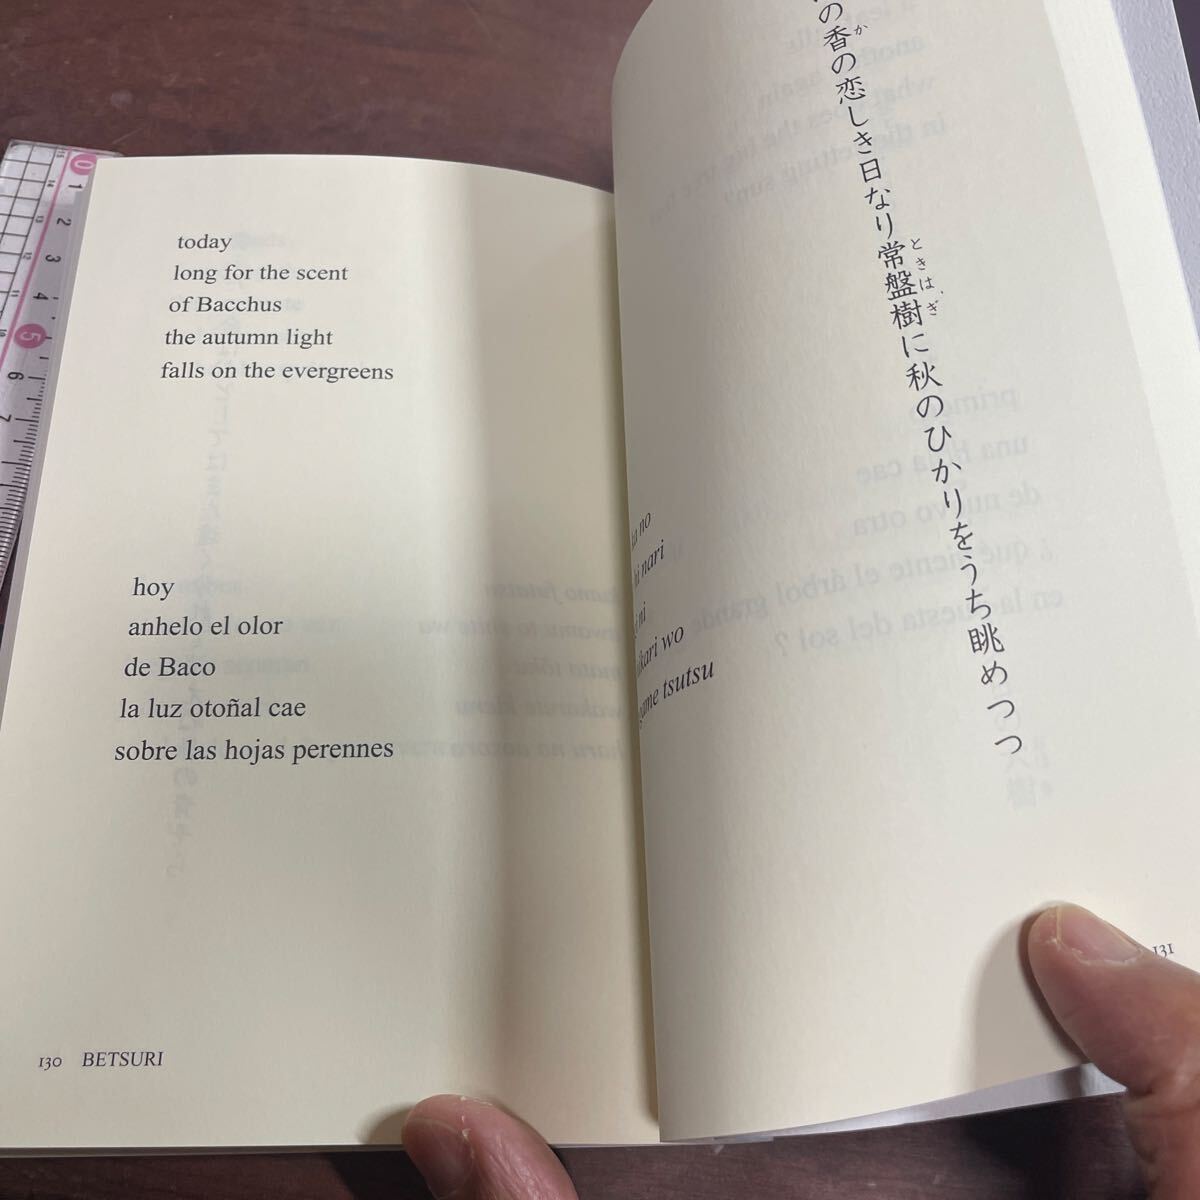 today
long for the scent
of Bacchus
the autumn light
falls on the evergreens
hoy
anhelo el olor
de Baco
la luz otoñal cae
sobre las hojas perennes
130 BETSURI
の香の恋しき日なり常盤樹に秋のひかりをうち眺めつつ
か
ときはぎ
no
nari
ni
wo
tsutsu
131
0
1
2
3
4
5
6
7